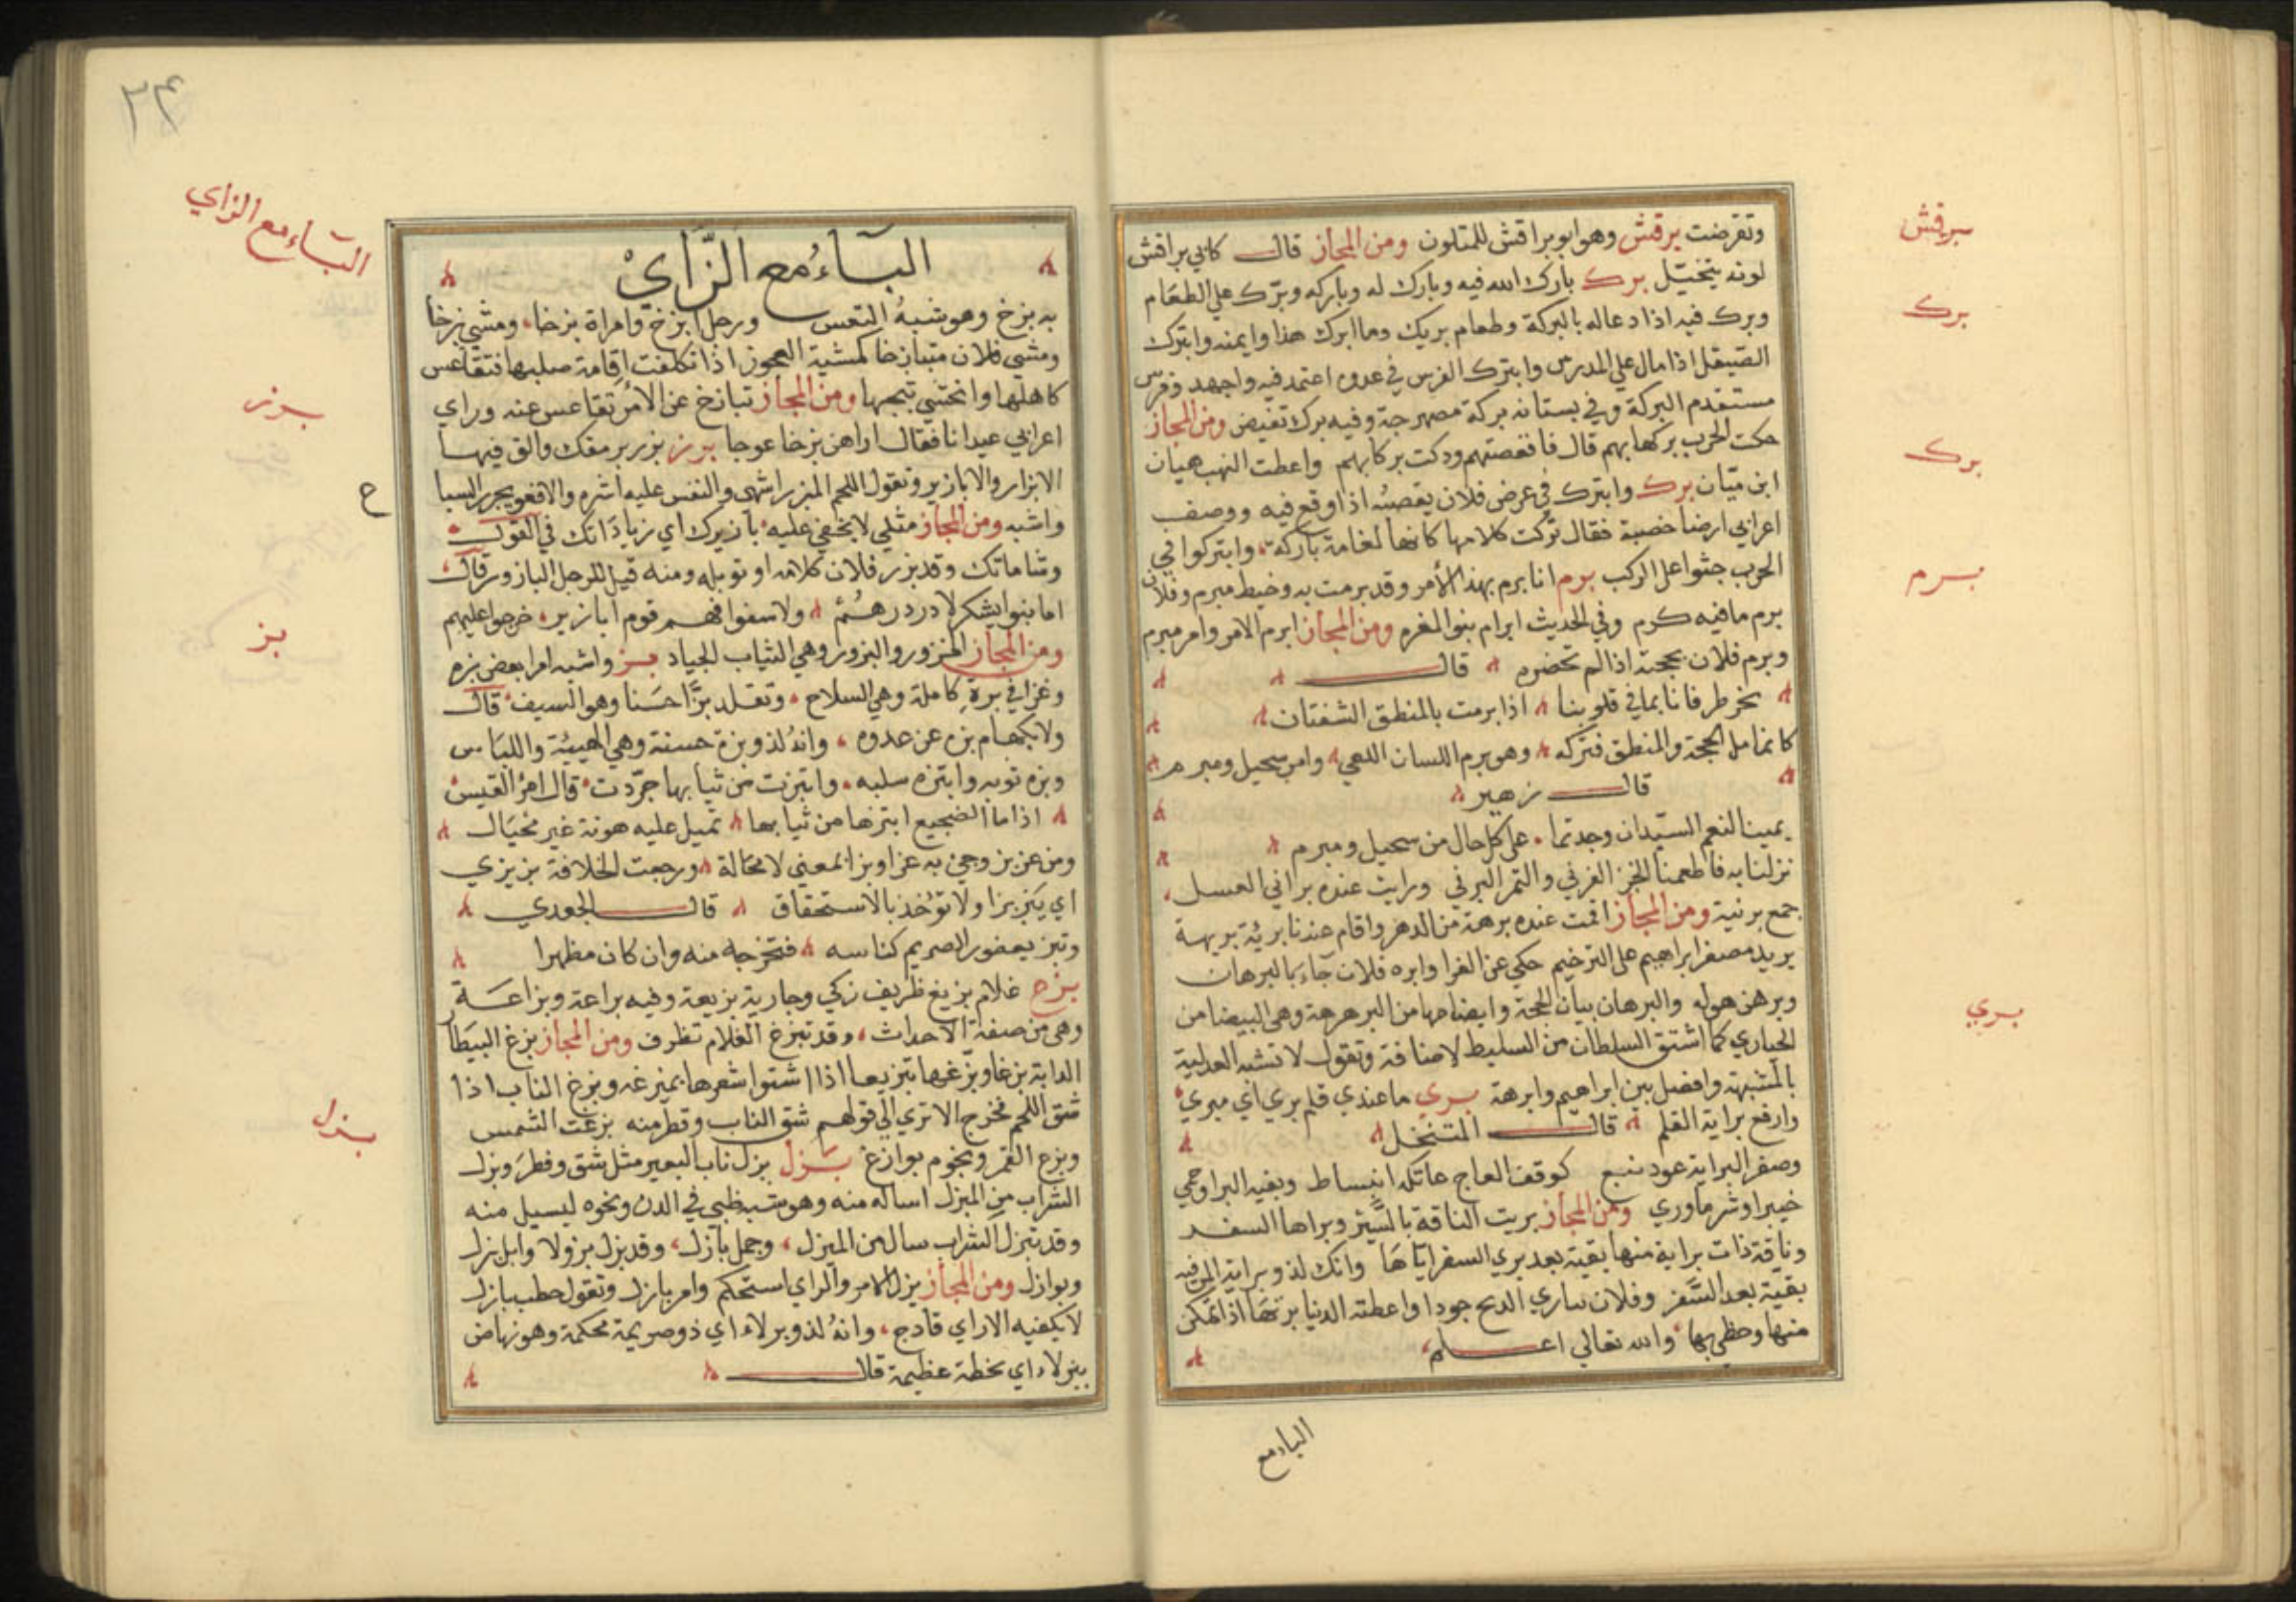 وتقرضت برقش وهو ابو براقش للمتلون ومن المجاز قال كابي براقش
برقش
لونه يتخيل برك بارك الله فيه وبارك له وباركه وبرك علي الطعام
برك
وبرك فيه اذا دعا له بالبركة وطعام بريك وما ابرك هذا وايمنه وابترك
الصيقل اذا مال علي المدوس وابترك الفرس في عدوه اعتمد فيه واجهد وفرس
مستقدم البركة وفي بستانه بركة مصهرجة وفيه برك تفيض ومن المجاز
حكت الحرب بركها بهم قال فاقعصتهم وحكت بركها بهم واعطت النهب هيان
برك
ابن بيان برك وابترك في عرض فلان يقصبه اذا وقع فيه ووصف
اعرابي ارضا خصبة فقال تركت كلاها كانها نعامة باركة وابتركوا في
الحرب جثوا علي الركب برم انا برم بهذا الأمر وقد برمت به وخيط مبرم وفلان
برم
برم ما فيه كرم وفي الحديث ابرام بنو المغيرة ومن المجاز ابرم الامر وامر مبرم
وبرم فلان بحجته اذا لم تحضره قال
فانا بما في قلوبنا اذا برمت بالمنطق الشفتان
الحجة والمنطق فتركه وهو برم اللسان وامر سحيل ومبرم
قال زهير
يمينا لنعم السيدان وجدتما على كل حال من سحيل ومبرم
نزلنا به فاطعمنا الخبز الفرني والتمر البرني ورايت عنده براني العسل
جمع برنية ومن المجاز اقمت عنده برهة من الدهر واقام عندنا بريهة
يريد مصغر ابراهيم على الترخيم حكي عن الفرا وابره فلان جاء بالبرهان
وبرهن والبرهان بيان الحجة وايضاحها من البرهرهة وهي البيضا من
بري
الجواري كما اشتق السلطان من السليط لاضافة وتقول لا تشبه العدلية
بالمشبهة وافضل بين ابراهيم وابرهة بري ما عندي قلم بري اي مبري
وارفع براية القلم قال المتنخل
وصفر البراية عود نبع كوقف العاج عاتكة اللياط وبفيه البرا وحمي
خيبرا وشر ما وري ومن المجاز بريت الناقة بالسير وبراها السفر
وناقة ذات براية منها بقية بعد بري السفر اياها وانك لذو براية اي فيه
بقية بعد السفر وفلان يباري الريح جودا واعطته الدنيا برتها اذا تمكن
منها وحظي بها والله تعالي اعلم
الباء مع
٢٤
الباء مع الزاي
الباء مع الزاي
به بزخ وهو شبه القعس ورجل ابزخ وامراة بزخا ومشي بزخا
ومشي فلان متبازخا كمشية العجوز اذا تكلفت اقامة صلبها فتقاعس
كاهلها وانحني ثبجها ومن المجاز تبازخ عن الأمر تقاعس عنه وراي
بزر
اعرابي عيدانا فقال اراهن بزخا عوجا بزر بزر برمتك والق فيها
الابزار والابازير وتقول اللحم المبزر اشهى والنفس عليه اشره والافعي بجرز السبا
ح
واشبه ومن المجاز مثلي لا يخفي عليه بازيرك اي زياداتك في القول
وشاماتك وقد بزر فلان كلامه او توبله ومنه قيل للرجل البازور قال
اما بنو يشكر لا در درهم ولا سقوا فهم قوم ابازير خرجوا عليهم
بز
ومن المجاز المزرور والبزور وهي الثياب الجياد بز واشبه امرا بعض بزه
وغزا في بزة كاملة وهي السلاح وتقلد بزا حسنا وهو السيف قال
ولا بكهام بزه عن عدوه وانه لذو بزة حسنة وهي الهيئة واللباس
وبزه ثوبه وابتزه سلبه وابتزت من ثيابها جردت قال امرؤ القيس
اذا ما الضجيع ابتزها من ثيابها تميل عليه هونة غير مخبال
ومن عز بز وجئ به عزا وبزا بمعني لا محالة ورجعت الخلافة بزيزي
اي يبتز بزا ولا تؤخذ بالاستحقاق قال الجعدي
وتبز يعفور الصريم كناسه فتخرجه منه وان كان مظهرا
بزع غلام بزيع ظريف زكي وجارية بزيعة وفيه براعة وبزاعة
وهي من صفة الاحداث وقد تبزع الغلام تظرف ومن المجاز بزغ البيطار
الدابة بزغا وبزغها تبزيغا اذا شق اشعرها بمبزغه وبزغ الناب اذا
شق اللحم فخرج الا تري الي قولهم شق الناب وفطر منه بزغت الشمس
بزل
وبزغ القمر ونجوم بوازغ بزل بزل ناب البعير مثل شق وفطر وبزل
الشراب من المبزل اساله منه وهو مثقبه في الدن ونحوه ليسيل منه
وقد تبزل الشراب سال من المبزل وجمل بازل وقد بزل بزولا وابل بزل
وبوازل ومن المجاز بزل الامر والراي استحكم وامر بازل وتقول خطب بازل
لا يكفيه الا راي قادح وانه لذو بزلاء اي ذو صريمة محكمة وهو نهاض
ببزلاء اي بخطة عظيمة قال